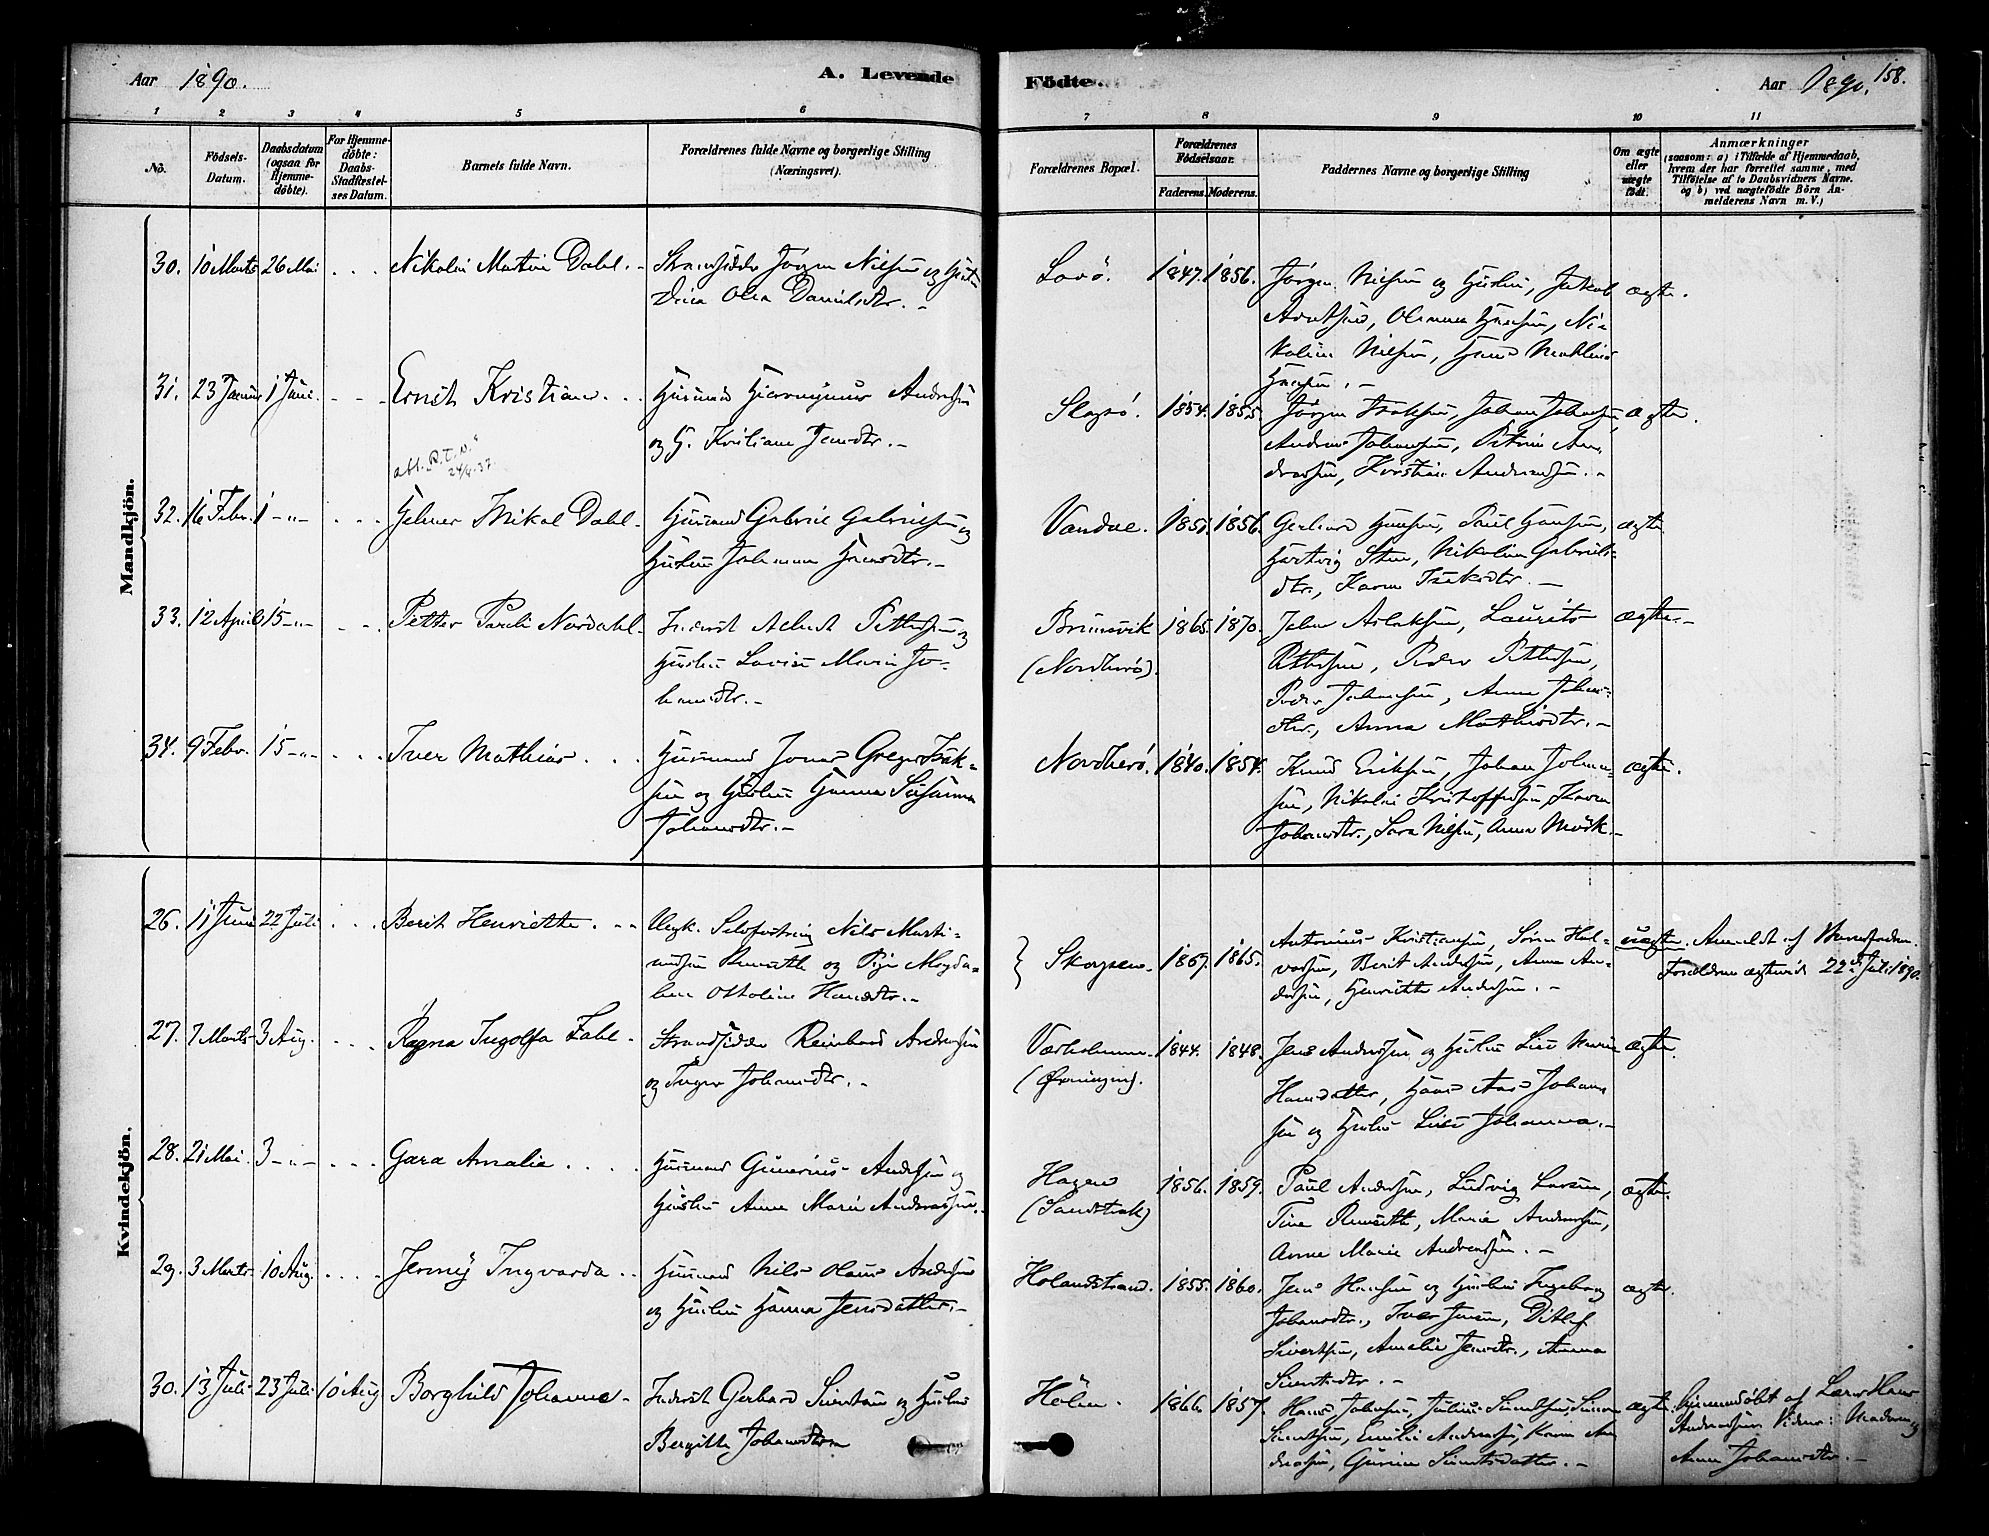 Aar 1890.
A. Levende
Födte.
Aar 1890.
158.
1 2 3 4 5 6
7 8 9 10 11
No.
Födsels-
Datum.
Daabsdatum
(ogsaa for
Hjemme-
döbte).
For Hjemme-
döbte:
Daabs-
Stadfæstel-
ses Datum.
Barnets fulde Navn.
Forældrenes fulde Navne og borgerlige Stilling
(Næringsvei).
Forældrenes Bopæl.
Forældrenes
Födselsaar.
Faderens.
Moderens.
Faddernes Navne og borgerlige Stilling
Om ægte
eller
uægte
födt.
Anmærkninger
(saasom: a) i Tilfælde af Hjemmedaab,
hvem der har forrettet samme, med
Tilföielse af to Daabsvidners Navne.
og b) ved uægtefödte Börn An-
melderens Navn m. V.)
Mandkjön.
30. 10 Marts 26 Mai
Nikolai Martin Dahl.
Strandsidder Jörgen Nilsen og Hustru
Olea Danielsdtr.
Lovö.
1847. 1856.
Jörgen Nilsen og Hustru, Jakob
Arntsen, Hansen, Ni-
koline Nilsen, Hans
Hansen.
ægte.
31. 23 Januar 1 Juni.
Ernst Kristian
Husmand Hieronymus Andersen
og H. Kristiane Jensdtr.
Slapö.
1854. 1855.
Jörgen Isaksen, Johan Johansen,
Andreas Johansen, Petrine An-
dreassen, Kirstine Andreassen.
ægte.
att. P.T.V.
24/4-37.
32. 16 Febr. 1 -"-
Helmer Mikal Dahl.
Husmand Gabriel Gabrielsen og
Hustru Johanna Hansdtr.
Vandal.
1851. 1856.
Gerhard Hansen, Paul Hansen,
Hartvig Sten, Nikoline Gabriels-
dtr., Karen Isaksdtr.
ægte.
33. 12 April 15 -"-
Petter Pareli Nordahl.
Inderst Albert Pettersen og
Hustru Lovise Marie Jo-
hansdtr.
Brunsvik
(Nordherö).
1865. 1870.
Johan Aslaksen, Laurits
Pettersen, Peder Pettersen,
Peder Johansen, Anna Johans-
dtr., Anna Mathisdtr.
ægte.
34. 9 Febr. 15 -"-
Iver Mathias
Husmand Jonas Greger Isak-
sen og Hustru Hanna Susanna
Johansdtr.
Nordherö.
1840. 1854.
Knud Eriksen, Johan Johan-
sen, Nikolai Kristoffersen, Karen
Johansdtr., Sara Nilsen, Anna Mörk.
ægte.
Kvindekjön.
26. 11 Juni 22 Juli
Berit Henriette
Ungk. Nils Marti-
nusen og Magda-
lena Ottoline Hansdtr.
Skogsen.
1867. 1865.
Antonius Kristiansen, Sören Hal-
vorsen, Berit Andersen, Anna An-
dersen, Henriette Andersen.
uægte.
Anmeldt af Barnefaderen.
Forældrene ægteviet 22de Juli 1890.
27. 7 Marts 3 Aug.
Ragna Ingolfa Fahl.
Strandsidder Reinhard Andersen
og Inger Johansdtr.
Varholmen
1844. 1848.
Jens Andersen og Hustru Lise Marie
Hansdatter, Hans Aas Johan-
sen og Hustru Lise Johanna.
ægte.
28. 21 Mai. 3 -"-
Gara Amalie
Husmand Gunerius Andersen og
Hustru Anne Marie Andreassen.
Hagen
(Sandstrak)
1856. 1859.
Paul Andersen, Ludvig Larsen,
Tine Marie Andersen,
Anne Marie Andreassen.
ægte.
29. 3 Marts 10 Aug.
Jenny Ingvarda
Husmand Nils Olaus Andersen
og Hustru Hanna Jensdatter.
Holandstrand.
1855. 1860.
Jens Hansen og Hustru Ingeborg
Johansdtr., Iver Jensen, Ditlef
Sivertsen, Amalie Jensdtr., Anna
Sivertsdtr.
ægte.
30. 13 Juli 23 Juli 10 Aug
Borghild Johanna
Inderst Gerhard Sivertsen og Hustru
Bergitte Johansdtr.
Holm.
1866. 1857.
Hans Johnsen, Julius Sivertsen, Simon
Sivertsen, Emilie Andersen, Karen An-
dreassen, Gurine Sivertsdatter.
ægte.
hjemmedöbt af Lærer Hans
Andreassen. Vidner: Moderen og
Anne Johansdtr.